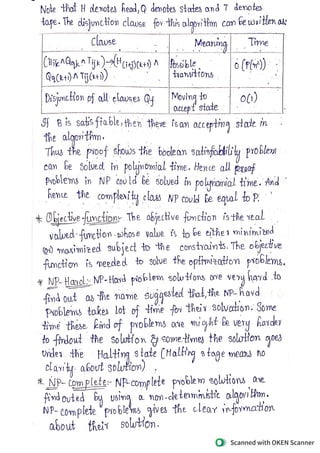 Note that H denotes head, Q denotes states and T denotes
tape. The disjunction clause for this algorithm can be written as:
Clause Meaning Time
(Hik ∧ Qqk ∧ Tijk) → (H(i+j)(k+1) ∧ Possible O(P(n²))
Qq(k+1) ∧ Tij(k+1)) transitions
Disjunction of all clauses Qf Moving to O(1)
accept state
If B is satisfiable, then there is an accepting state in
the algorithm.
Thus the proof shows the boolean satisfability problem
can be solved in polynomial time. Hence all
problems in NP could be solved in polynomial time. And
hence the complexity class NP could be equal to P.
* Objective function:- The objective function is the real
valued function whose value is to be either minimized
(or) maximized subject to the constraints. The objective
function is needed to solve the optimization problems.
* NP-Hard:- NP-Hard problem solutions are very hard to
find out as the name suggested that, the NP-hard
Problems takes lot of time for their solvation. Some
time these kind of problems are might be very harder
to findout the solution. & some times the solution goes
under the Halting state (Halting stage means no
clarity about solution).
* NP-Complete:- NP-complete problem solutions are
find outed by using a non-deterministic algorithm.
NP-complete problems gives the clear information
about their solution.
Scanned with OKEN Scanner